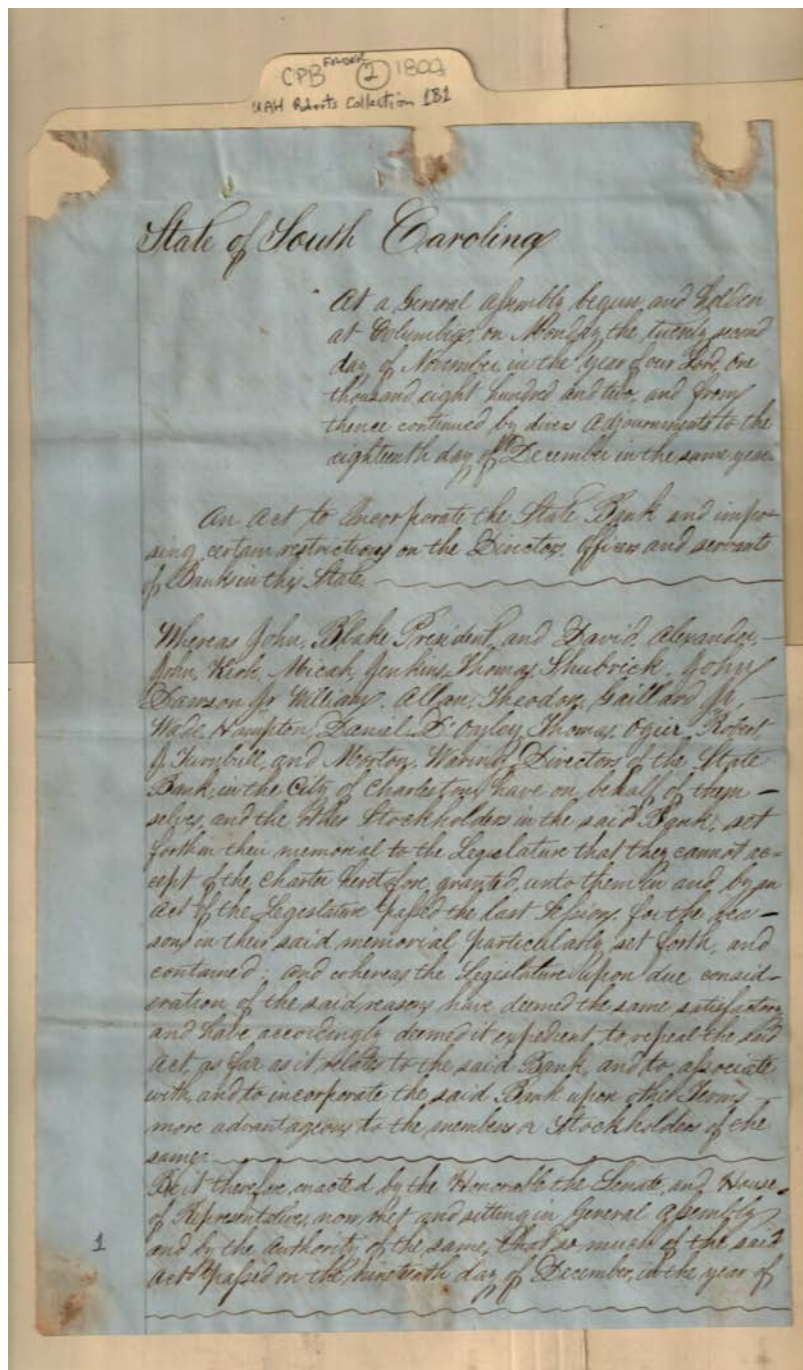 CPB FOLDER 2 1802
UAH Roberts Collection 1B1
State of South Carolina
At a General Assembly begun and holden
at Columbia, on Monday the twenty second
day of November, in the year of our Lord, one
thousand eight hundred and two, and from
thence continued by divers Adjournments to the
eighteenth day of December in the same year.
An Act to Incorporate the State Bank and impo-
sing certain restrictions on the Directors, Officers and servants
of Banks in this State.
Whereas John, Blake President, and David, Alexander,
John, Kirk, Micah, Jenkins, Thomas, Shubrick, John
Dawson Jr William, Allan, Theodore, Gaillard Jr,
Wade, Hampton, Daniel, D'Oyley, Thomas, Ogier, Robert,
J, Turnbull, and Morton, Waring, Directors of the State
Bank, in the City of Charleston, have on, behalf of them-
selves, and the other Stockholders in the said Bank, set
forth in their memorial to the Legislature that they cannot ac-
cept of the, charter heretofore, granted, unto them in and, by an
Act of the Legislature passed the last Session, for the rea-
sons in their said, memorial particularly, set forth, and
contained; and whereas the Legislature upon due consid-
eration of the said, reasons have deemed the same satisfactory
and have accordingly deemed it expedient, to repeal the said
Act, as far as it relates to the said Bank, and to, associate
with, and to incorporate the said Bank upon other Terms
more advantageous to the members or Stockholders of the
same.
Be it therefore, enacted by the Honorable the Senate, and House,
of Representatives, now, met and sitting in General Assembly,
and by the Authority of the same, that so much of the said
Act passed on the, nineteenth day, of December, in the year of
1